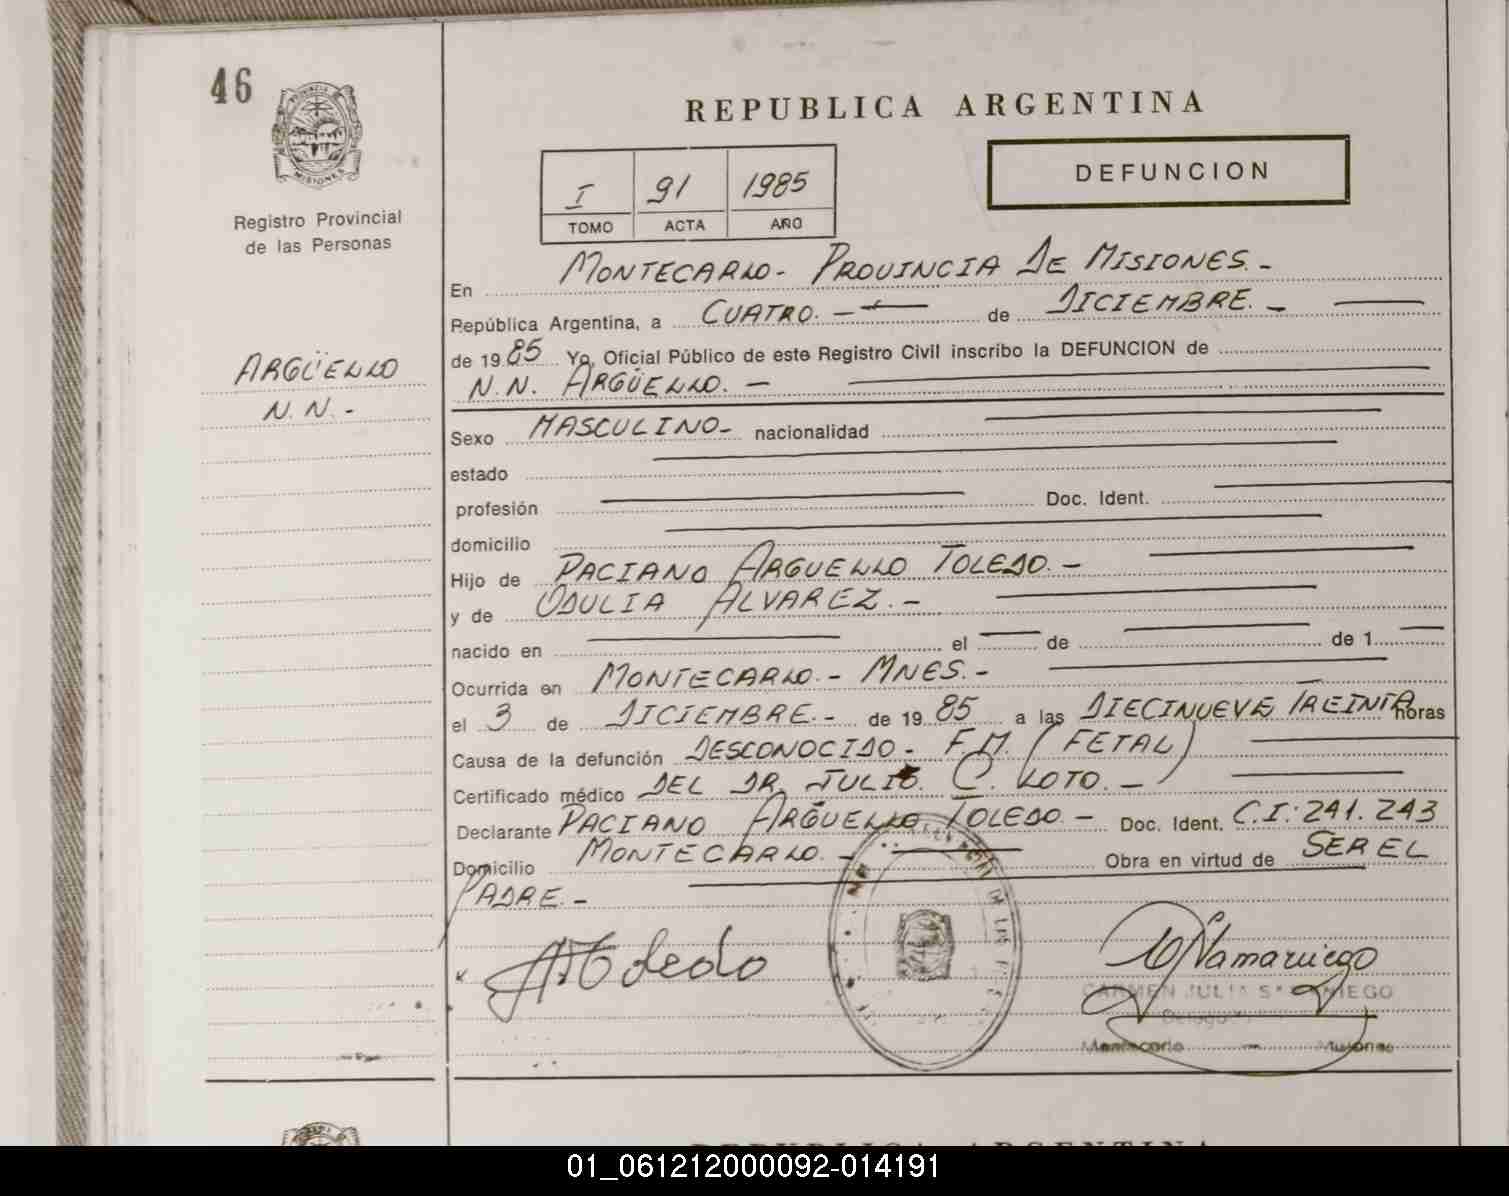 46
PROVINCIA DE
MISIONES
Registro Provincial
de las Personas
ARGÜELLO
N.N.-
REPUBLICA ARGENTINA
I 91 1985
TOMO ACTA AÑO
DEFUNCION
En MONTECARLO- PROVINCIA DE MISIONES.-
República Argentina, a CUATRO.- de DICIEMBRE.-
de 1985 Yo, Oficial Público de este Registro Civil inscribo la DEFUNCION de
N.N. ARGÜELLO.-
Sexo MASCULINO- nacionalidad
estado
profesión Doc. Ident.
domicilio
Hijo de PACIANO ARGUELLO TOLEDO.-
y de ODULIA ALVAREZ.-
nacido en el de de 1
Ocurrida en MONTECARLO.- MNES.-
el 3 de DICIEMBRE.- de 1985 a las DIECINUEVE TREINTA horas
Causa de la defunción DESCONOCIDO- F.M. (FETAL)
Certificado médico DEL DR. JULIO C. LOTO.-
Declarante PACIANO ARGUELLO TOLEDO- Doc. Ident. C.I: 241.243
Domicilio MONTECARLO.- Obra en virtud de SER EL
PADRE.-
Toledo
CARMEN JULIA SAMANIEGO
Montecarlo - Misiones
REPUBLICA ARGENTINA
01_061212000092-014191